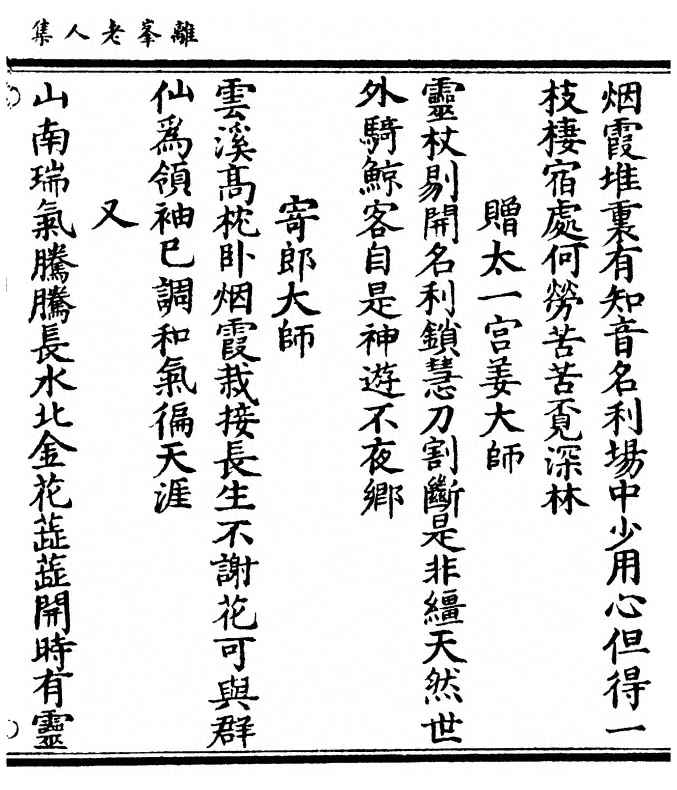 離峯老人集
烟霞堆裏有知音名利場中少用心但得一
枝棲宿處何勞苦苦覔深林
贈太一宫姜大師
靈杖剔開名利鎖慧刀割斷是非繮天然世
外騎鯨客自是神遊不夜鄉
寄郎大師
雲溪髙枕卧烟霞栽接長生不謝花可與群
仙爲領袖巳調和氣徧天涯
又
山南瑞氣騰騰長水北金花開時有靈